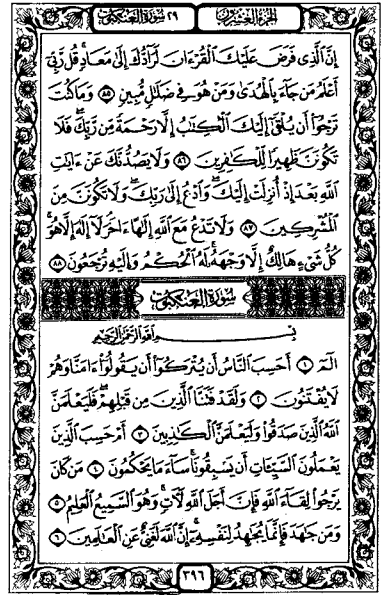 الجزء العشرون
٢٩ سورة العنكبوت
إِنَّ ٱلَّذِى فَرَضَ عَلَيْكَ ٱلْقُرْءَانَ لَرَآدُّكَ إِلَىٰ مَعَادٍ ۚ قُل رَّبِّىٓ
أَعْلَمُ مَن جَآءَ بِٱلْهُدَىٰ وَمَنْ هُوَ فِى ضَلَٰلٍ مُّبِينٍ ٨٥ وَمَا كُنتَ
تَرْجُوٓا۟ أَن يُلْقَىٰٓ إِلَيْكَ ٱلْكِتَٰبُ إِلَّا رَحْمَةً مِّن رَّبِّكَ ۖ فَلَا
تَكُونَنَّ ظَهِيرًا لِّلْكَٰفِرِينَ ٨٦ وَلَا يَصُدُّنَّكَ عَنْ ءَايَٰتِ
ٱللَّهِ بَعْدَ إِذْ أُنزِلَتْ إِلَيْكَ ۖ وَٱدْعُ إِلَىٰ رَبِّكَ ۖ وَلَا تَكُونَنَّ مِنَ
ٱلْمُشْرِكِينَ ٨٧ وَلَا تَدْعُ مَعَ ٱللَّهِ إِلَٰهًا ءَاخَرَ ۘ لَآ إِلَٰهَ إِلَّا هُوَ ۚ
كُلُّ شَىْءٍ هَالِكٌ إِلَّا وَجْهَهُۥ ۚ لَهُ ٱلْحُكْمُ وَإِلَيْهِ تُرْجَعُونَ ٨٨
سورة العنكبوت
بِسْمِ ٱللَّهِ ٱلرَّحْمَٰنِ ٱلرَّحِيمِ
الٓمٓ ١ أَحَسِبَ ٱلنَّاسُ أَن يُتْرَكُوٓا۟ أَن يَقُولُوٓا۟ ءَامَنَّا وَهُمْ
لَا يُفْتَنُونَ ٢ وَلَقَدْ فَتَنَّا ٱلَّذِينَ مِن قَبْلِهِمْ ۖ فَلَيَعْلَمَنَّ
ٱللَّهُ ٱلَّذِينَ صَدَقُوا۟ وَلَيَعْلَمَنَّ ٱلْكَٰذِبِينَ ٣ أَمْ حَسِبَ ٱلَّذِينَ
يَعْمَلُونَ ٱلسَّيِّـَٔاتِ أَن يَسْبِقُونَا ۚ سَآءَ مَا يَحْكُمُونَ ٤ مَن كَانَ
يَرْجُوا۟ لِقَآءَ ٱللَّهِ فَإِنَّ أَجَلَ ٱللَّهِ لَءَاتٍ ۚ وَهُوَ ٱلسَّمِيعُ ٱلْعَلِيمُ ٥
وَمَن جَٰهَدَ فَإِنَّمَا يُجَٰهِدُ لِنَفْسِهِۦٓ ۚ إِنَّ ٱللَّهَ لَغَنِىٌّ عَنِ ٱلْعَٰلَمِينَ ٦
٣٩٦